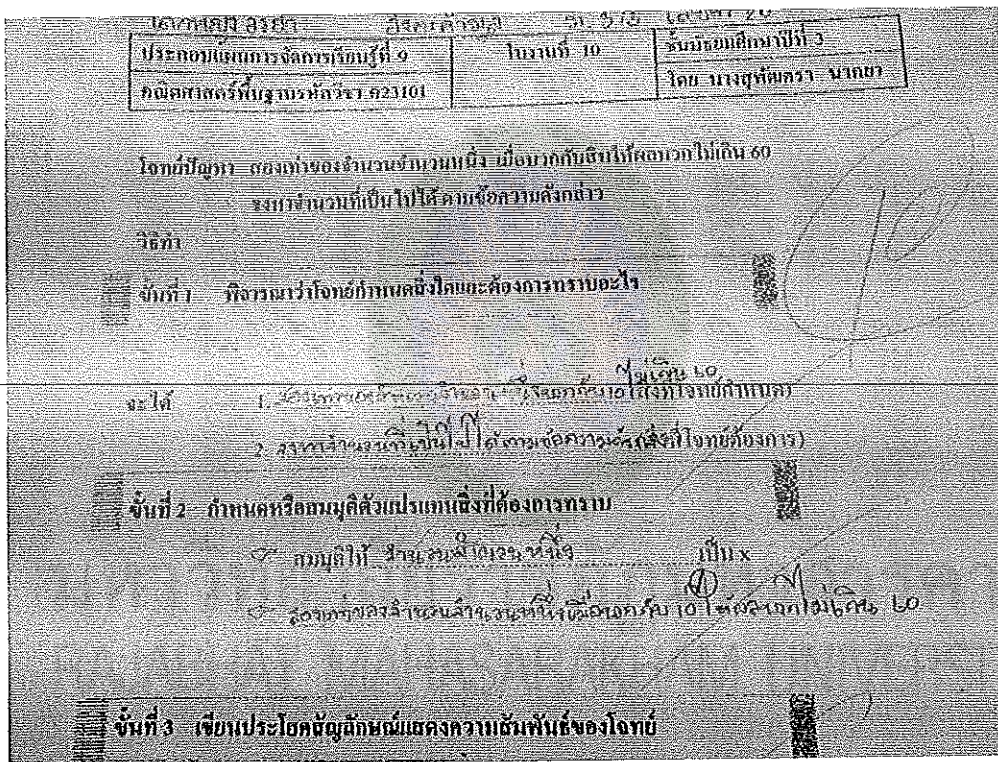 ประกอบแผนการจัดการเรียนรู้ที่ 9
ใบงานที่ 10
ชั้นมัธยมศึกษาปีที่ 3
คณิตศาสตร์พื้นฐานรหัสวิชา ค23101
โดย นางสุพัฒตรา นาคยา
โจทย์ปัญหา สองเท่าของจำนวนจำนวนหนึ่ง เมื่อบวกกับสิบให้ผลบวกไม่เกิน 60
จงหาจำนวนที่เป็นไปได้ตามข้อความดังกล่าว
วิธีทำ
ขั้นที่ 1 พิจารณาว่าโจทย์กำหนดสิ่งใดและต้องการทราบอะไร
ไม่เกิน 60
จะได้ 1. บวกกับ 10 (สิ่งที่โจทย์กำหนด)
2. จงหาจำนวนที่เป็นไปได้ตามข้อความ (สิ่งที่โจทย์ต้องการ)
ขั้นที่ 2 กำหนดหรือสมมุติตัวแปรแทนสิ่งที่ต้องการทราบ
สมมุติให้ จำนวนจำนวนหนึ่ง เป็น x
สองเท่าของจำนวนจำนวนหนึ่งเมื่อบวกกับ 10 ให้ผลบวกไม่เกิน 60
ขั้นที่ 3 เขียนประโยคสัญลักษณ์แสดงความสัมพันธ์ของโจทย์